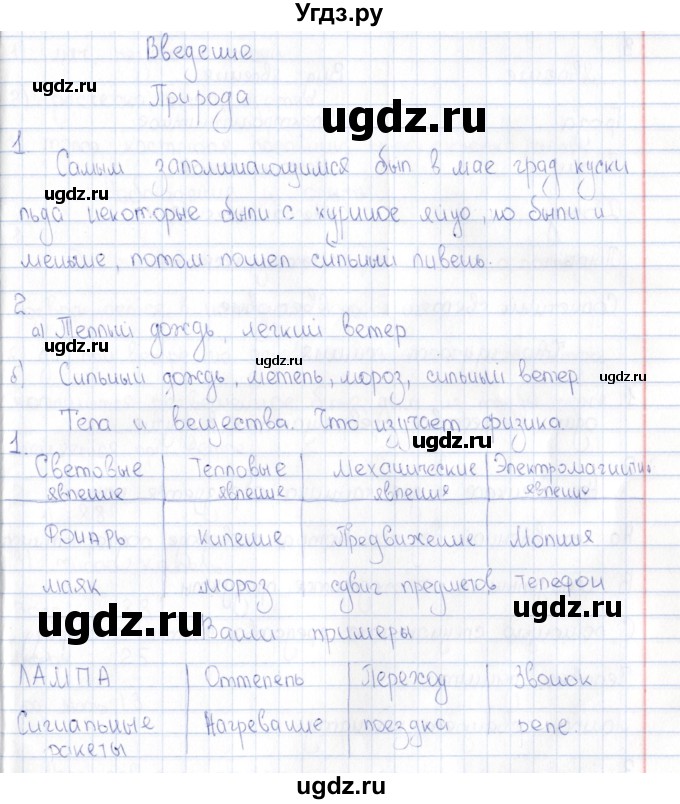 Угдз.ру
Введение
ugdz.ru
Природа
ugdz.ru
1
Самым запоминающимся был в мае град куски
ugdz.ru
льда некоторые были с куриное яйцо, но были и
меньше, потом пошел сильный ливень.
2
а) Теплый дождь, легкий ветер
ugdz.ru
ugdz.ru
б) Сильный дождь, метель, мороз, сильный ветер
ugdz.ru
Тела и вещества. Что изучает физика.
ugdz.ru
1.
Световые явление | Тепловые явление | Механические явления | Электромагнитн. явлении
Фонарь | кипение | Предвижение | Молния
маяк | мороз | сдвиг предметов | телефон
ugdz.ru
ugdz.ru
Ваши примеры
ЛАМПА | Оттепель | Переход | Звонок
Сигнальные ракеты | Нагревание | поездка | реле.
ugdz.ru
ugdz.ru
ugdz.ru